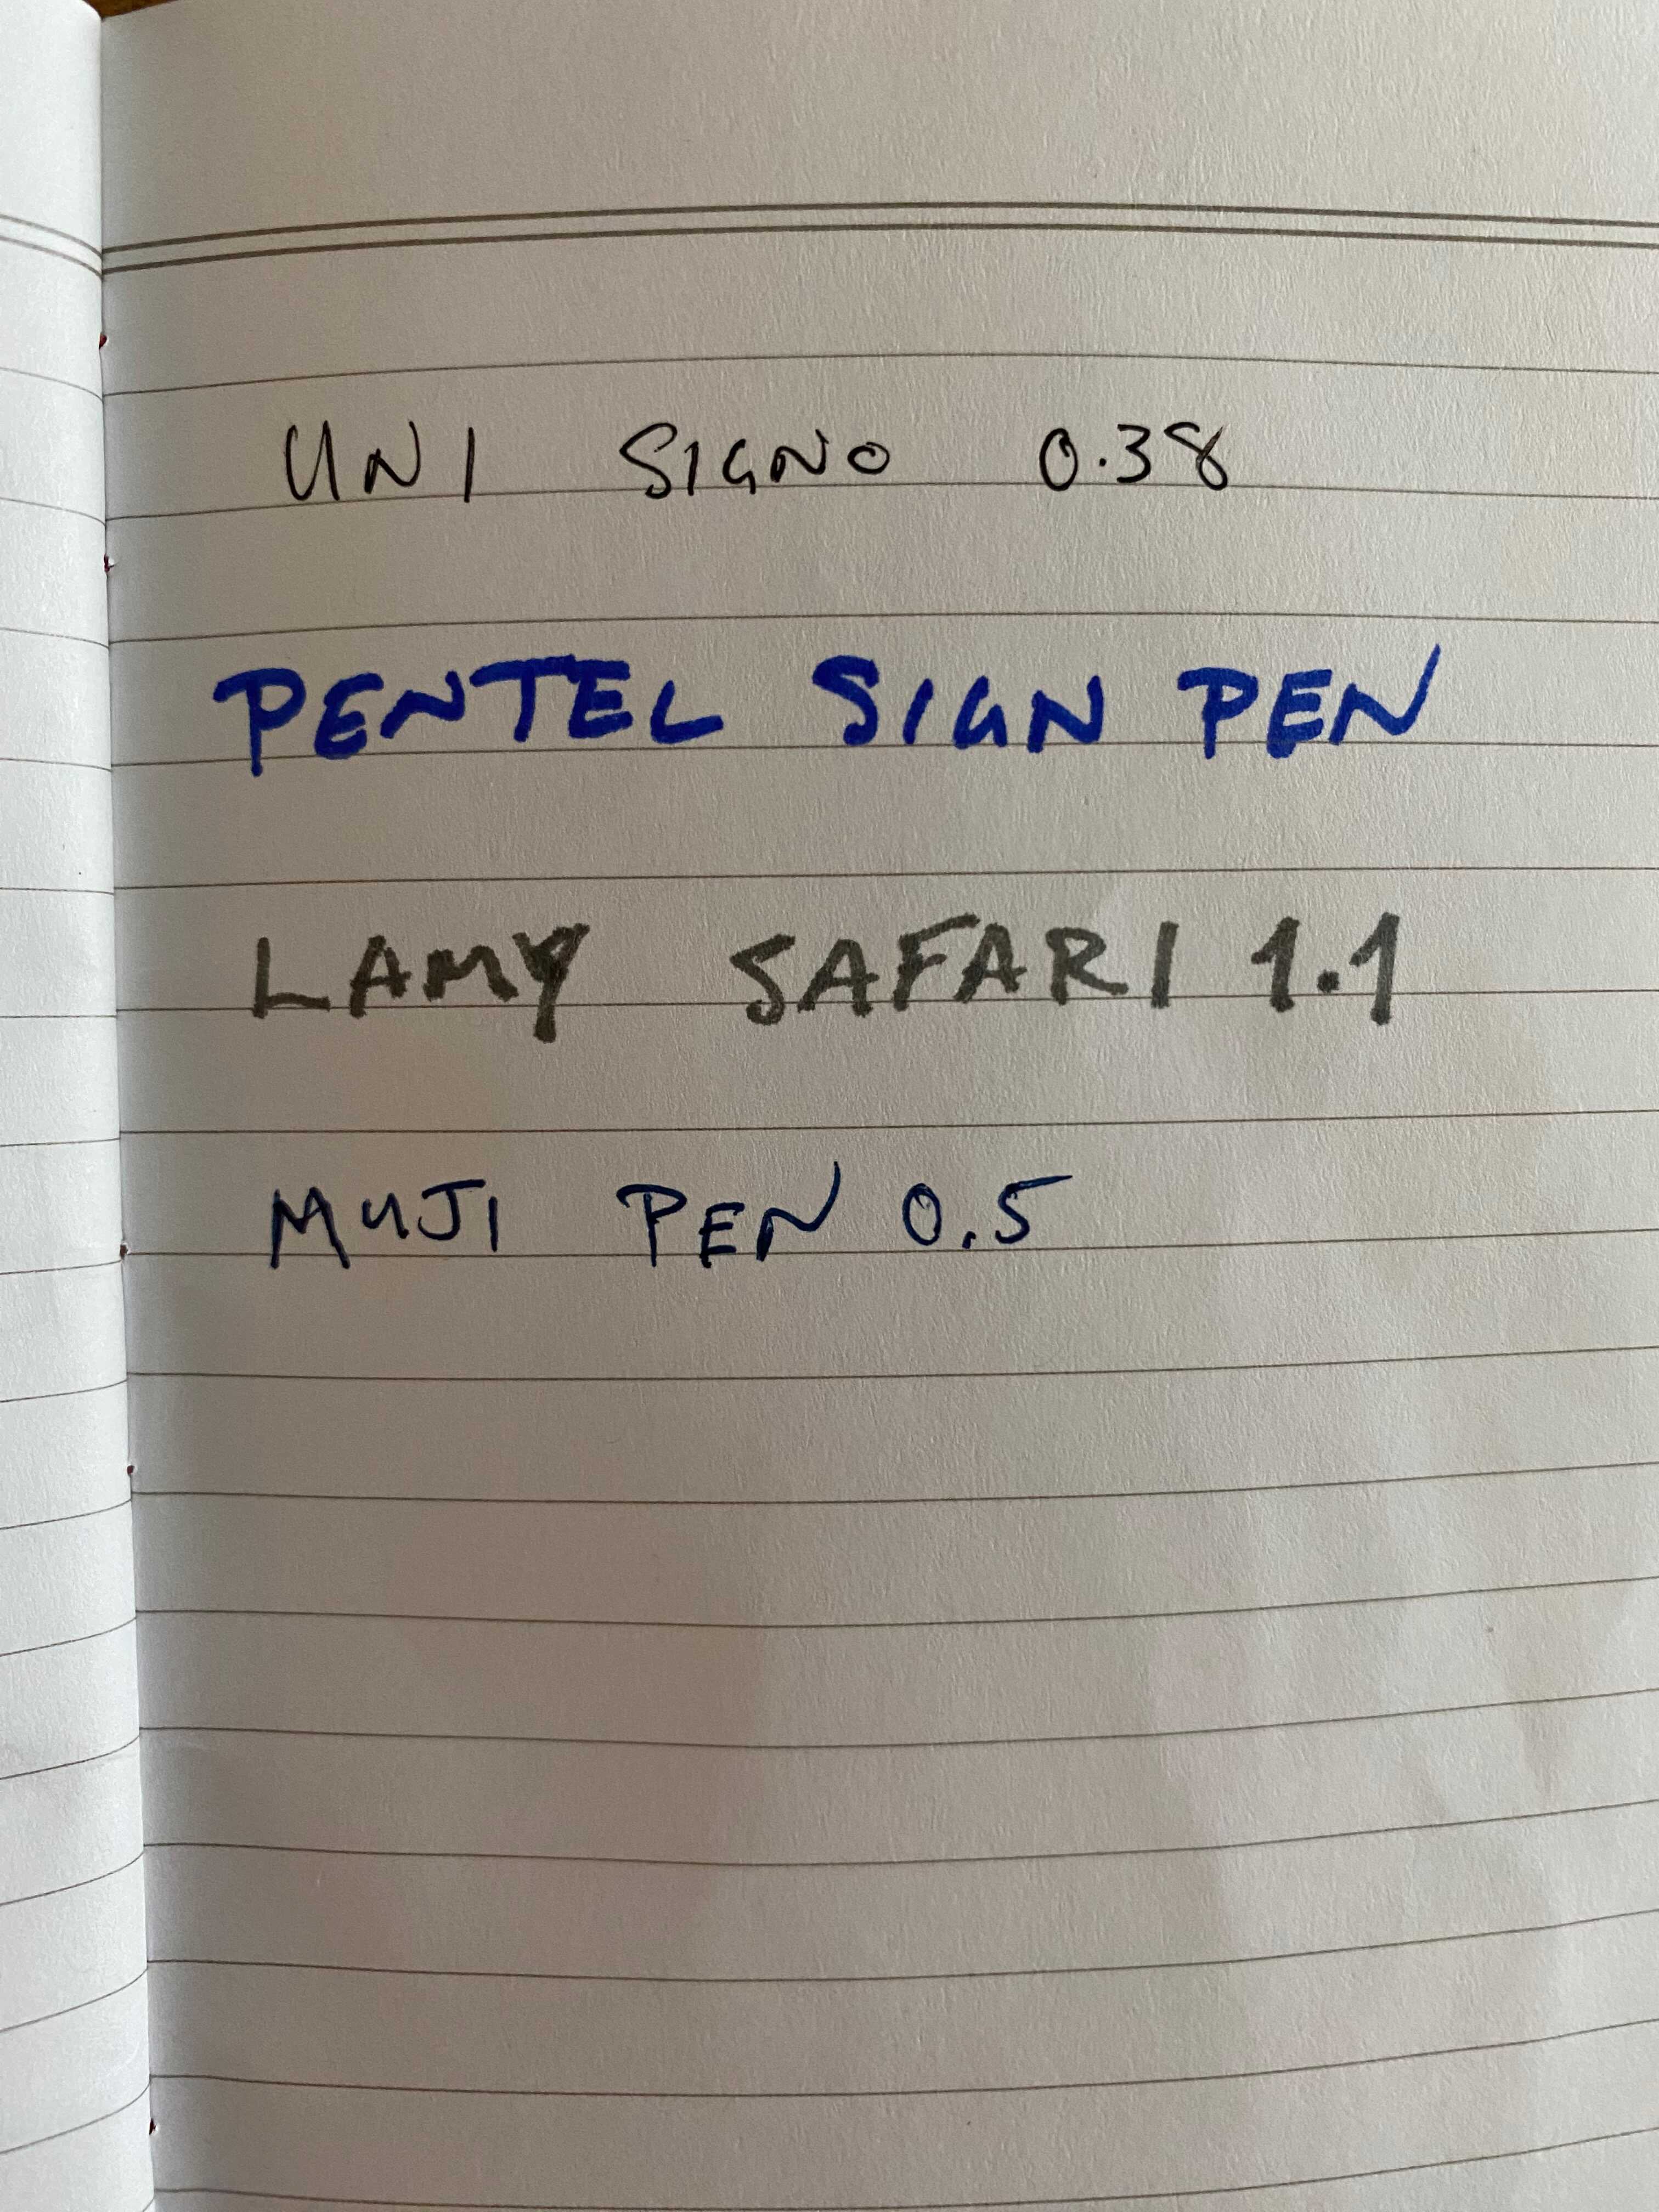 UNI SIGNO 0.38
PENTEL SIGN PEN
LAMY SAFARI 1.1
MUJI PEN 0.5